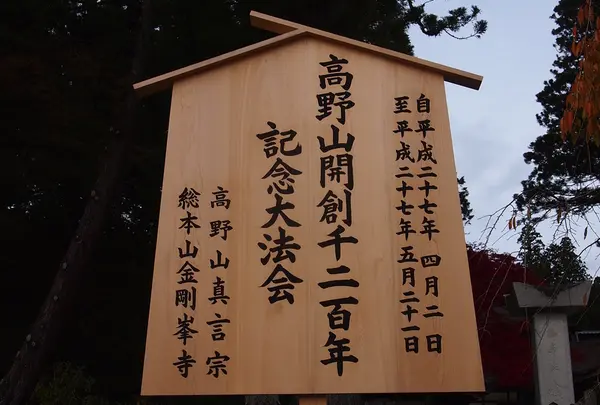 自平成二十七年四月二日
至平成二十七年五月二十一日
高野山開創千二百年
記念大法会
高野山真言宗
総本山金剛峯寺